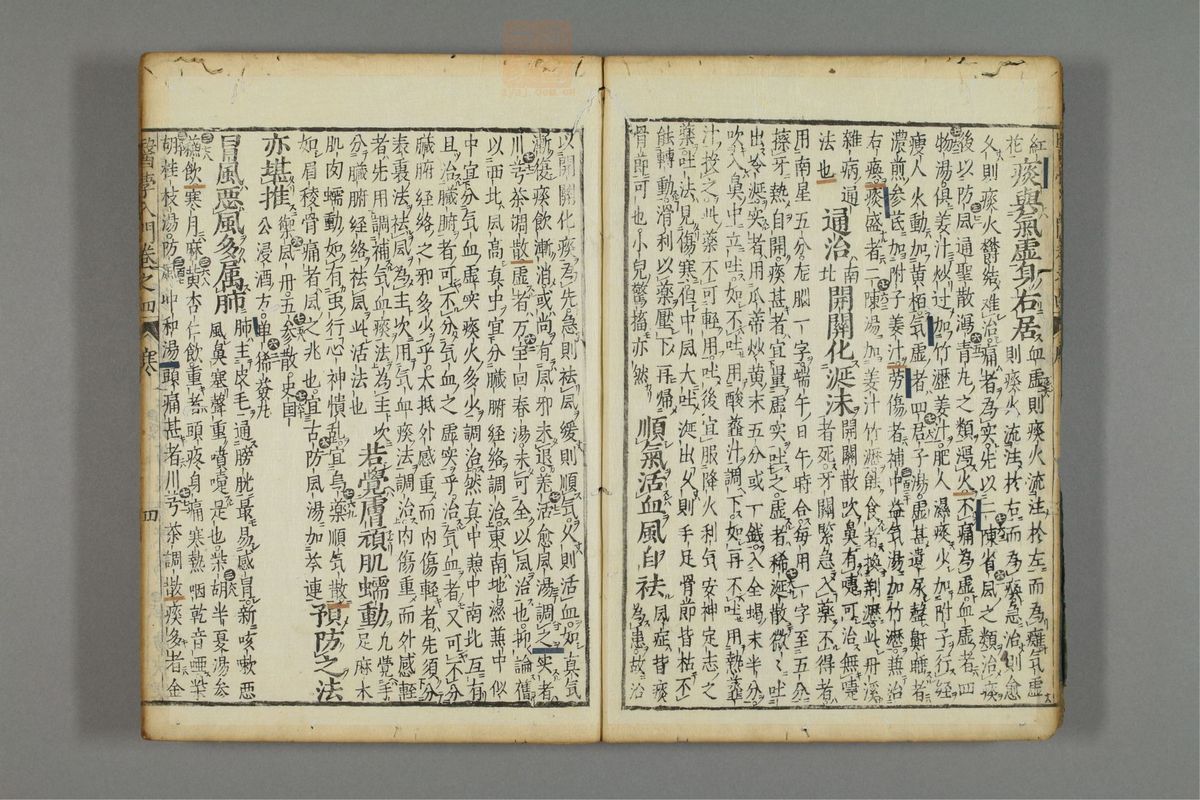 紅花
痰與氣虛身右居
血虛則痰火流注於左而為癱氣虛
則痰火流注於右而為瘓急治則愈
久則痰火鬱結难治痛者為實先以二陳省風之類治痰
後以防風通聖散瀉青丸之類瀉火不痛為虛血虛者四
物湯俱姜汁炒过加竹瀝姜汁肥人濕痰少加附子行經
瘦人火動加黄栢氣虛者四君子湯虛甚遺尿聲鼾難治
濃煎参芪加附子姜汁劳傷者補中益氣湯加竹瀝兼治
右瘓痰盛者二陳湯加姜汁竹瀝能食者換荆瀝此丹溪
雜病通
法也
通治南北開關化涎沫
開關散吹鼻有嚏可治無嚏
者死牙關緊急入藥不得者
用南星五分龙腦一字端午日午時合每用一字至五分
擦牙熱自開痰甚者宜量虛實吐之虛者稀涎散微微吐
出冷涎实者用瓜蒂炒黄末五分或一錢入全蝎末半分
吹入鼻中立吐如不吐用酸虀汁調下如再不吐用熱虀
汁投之此藥不可輕用吐後宜服降火利氣安神定志之
藥吐法見傷寒但中風大吐涎出久則手足骨節皆枯不
能轉動滑利久以藥壓下再帰
骨節可也小兒驚搐亦然
順氣活血風自祛
風症皆痰
為患故治
以開關化痰為先急則祛風缓則順气久則活血如真气
漸復痰飲漸消或尚有風邪未退羌活愈風湯調之实者
川芎茶调散虛者万宝回春湯未可全以風治也抑論舊
以西北風高真中宜分臟腑經絡調治東南地濕兼中似
中宜分气血虛实痰火多少調治然真中兼中南北互有
且治臟腑者可不分气血之虛实乎治气血者又可不分
臟腑經絡之邪多少乎大抵外感重而内傷輕者先須分
表裏法祛風為主次用气血痰法調治内傷重而外感輕
者先用調補气血痰法為主次
分臟腑經絡祛風此活法也
若覺膚頑肌蠕動
凡覺手
足麻木
肌肉蠕動如有虫行心神憒乱宜烏藥順气散
如眉稜骨痛者風之兆也宜古防風湯加芩連
預防之法
亦堪推
禦風丹五参散史国
公浸酒方单豨莶丸
冒風惡風多属肺
肺主皮毛通膀胱最易感冒新咳嗽恶
風鼻塞聲重噴嚏是也柴胡半夏湯参
蘇飲寒月麻黄杏仁飲重者頭疼身痛寒熱咽乾音啞柴
胡桂枝湯防風冲和湯頭痛甚者川芎茶調散痰多者金
醫學入門卷之四 寒
四